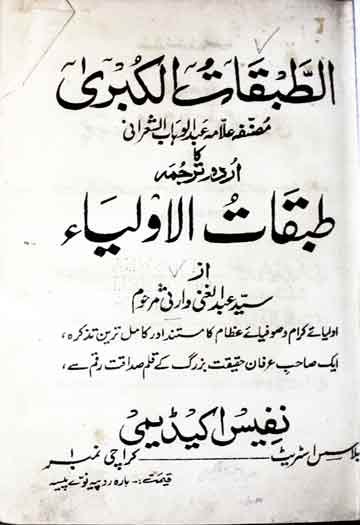 الطبقات الکبریٰ
مصنفہ علامہ عبدالوہاب الشعرانی
کا
اُردو ترجمہ
طبقات الاولیاء
از
سید عبدالغنی وارثی مرحوم
اولیائے کرام و صوفیائے عظام کا مستند اور کامل ترین تذکرہ،
ایک صاحبِ عرفان حقیقت بزرگ کے قلم صداقت رقم سے،
نفیس اکیڈیمی
بلاسس اسٹریٹ کراچی نمبر ۱
قیمت:- بارہ روپیہ نوے پیسہ